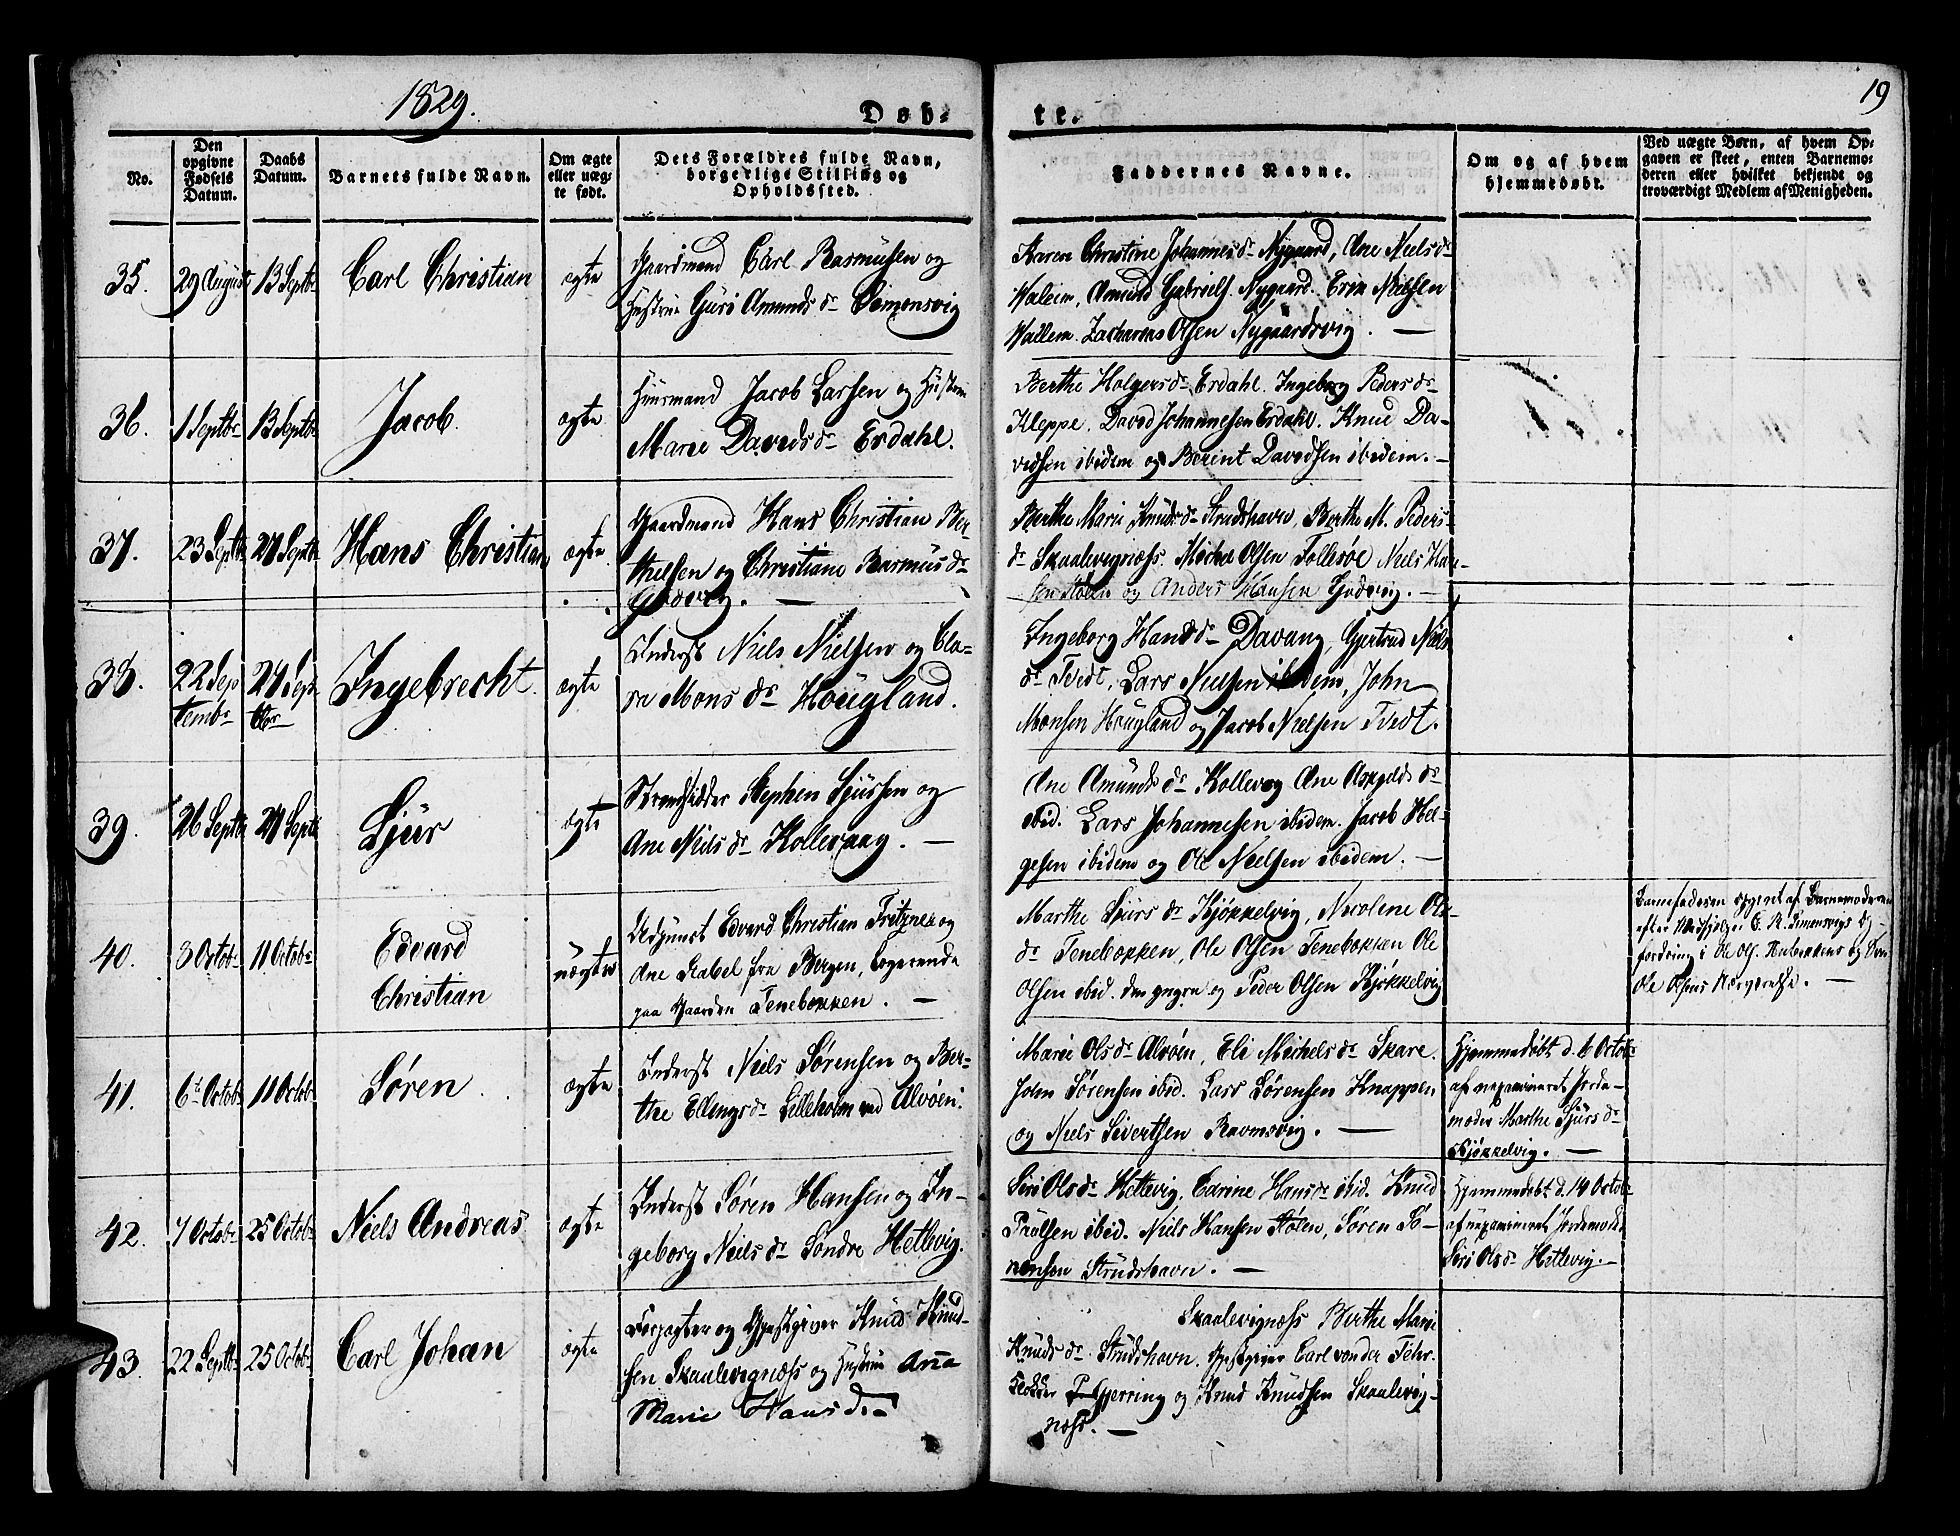 1829.
Døb-
te.
19
No.
Den opgivne Fødsels Datum.
Daabs Datum.
Barnets fulde Navn.
Om ægte eller uæg-te født.
Dets Forældres fulde Navn, borgerlige Stilling og Opholdssted.
Faddernes Navne.
Om og af hvem hjemmedøbt.
Ved uægte Børn, af hvem Op-gaven er skeet, enten Barnemo-deren eller hvilket bekjendt og troværdigt Medlem af Menigheden.
35. 29 August 13 Septbr Carl Christian ægte
Gaardmand Carl Rasmussen og
Hustrue Guri Amunds dr Simonsvig
Karen Christine Johannes dr Nygaard, Ane Niels dr
Walem, Amund Gabriels. Nygaard. Erik Nielsen
Wallem. Zacharias Olsen Nygaardsvig. —
36. 1 Septbr 13 Septbr Jacob. ægte
Huusmand Jacob Larsen og Hustrue
Marie Davids dr Erdahl.
Berthe Holgers dr Erdahl. Ingeborg Peders dr
Kleppe. David Johannesen Erdahl. Knud Da-
vidsen ibidem og Berint Davidsen ibidem. —
37. 23 Septbr 27 Septbr Hans Christian ægte
Gaardmand Hans Christian Ber-
thelsen og Christiane Rasmus dr
Godvig. —
Berthe Marie Knuds dr Strudshavn, Berthe M. Peders-
dr Skaalevignæss. Michel Olsen Follesøe Niels Han-
sen Støen og Anders Hansen Godvig. —
38. 22 Sep
tembr 27 Sept
tbr Ingebrecht. ægte
Inderst Niels Nielsen og Cla-
ra Mons dr Hougland.
Ingeborg Hans dr Davang, Gjertrud Niels
dr Tvedt, Lars Nielsen ibidem, John
Monsen Hougland og Jacob Nielsen Tvedt.
39. 26 Septbr 27 Septbr Sjur ægte
Strandsidder Stephen Sjursen og
Ane Niels dr Kollevaag. —
Ane Amunds dr Kollevog Ane Askjelds dr
ibid. Lars Johannesen ibidem. Jacob Hel-
gesen ibidem og Ole Nielsen ibidem. —
40. 3 Octobr 11 Octobr Edvard
Christian uægte
Adjunct Edvard Christian Fritzner og
Ane Isabel fra Bergen, logerende
paa Gaarden Tenebokken. —
Marthe Sjurs dr Kjøkkelvig, Nicoline Ols-
dr Tenebokken, Ole Olsen Tenebokken Ole
Olsen ibid. den yngre og Peder Olsen Kjøkkelvig
Barnefaderen opgivet af Barnemoderen
efter Medhjelper
fordring i Ole Ols.
Ole Olsens Nærværelse. —
41. 6te Octobr 11 Octobr Søren. ægte
Inderst Niels Sørensen og Ber-
the Ellings dr Lilleholm ved Alvøen.
Marie Ols dr Alvøen, Eli Michels dr Skare.
John Sørensen ibid. Lars Sørensen Knappen
og Niels Sivertsen Ravnsvig. —
Hjemmedøbt d. 6 Octobr
af uexamineret Jorde-
moder Marthe Sjurs dr
Kjøkkelvig. —
42. 7 Octobr 25 Octobr Niels Andreas ægte
Inderst Søren Hansen og In-
geborg Niels dr Søndre Hetlevig.
Siri Ols dr Hetlevig, Karine Hans dr ibid. Knud
Poulsen ibid. Niels Hansen Støen, Søren Sø-
rensen Strudshavn. —
Hjemmedøbt d. 14 Octobr
af uexamineret Jordemoder
Siri Ols dr Hetlevig. —
43. 22 Septbr 25 Octobr Carl Johan ægte
Forpagter og Gjestgiver Knud Knud-
sen Skaalevignæss og Hustrue Anna
Marie Hans dr
Skaalevignæss Berthe Marie
Knuds dr Strudshavn. Gjestgiver Carl von der Fehr.
Klokker P. Gjerring og Knud Knudsen Skaalevig-
næss. —